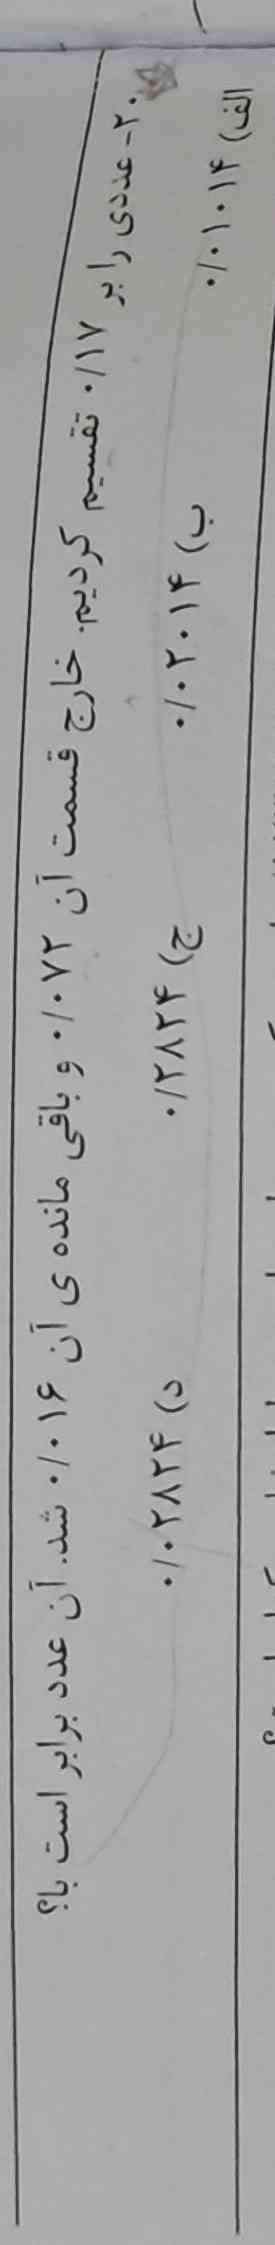 ۲۰- عددی را بر ۰/۱۷ تقسیم کردیم. خارج قسمت آن ۰/۰۷۲ و باقی مانده ی آن ۰/۰۱۶ شد. آن عدد برابر است با؟
الف) ۰/۰۱۰۱۴ ب) ۰/۰۲۰۱۴ ج) ۰/۲۸۲۴ د) ۰/۰۲۸۲۴